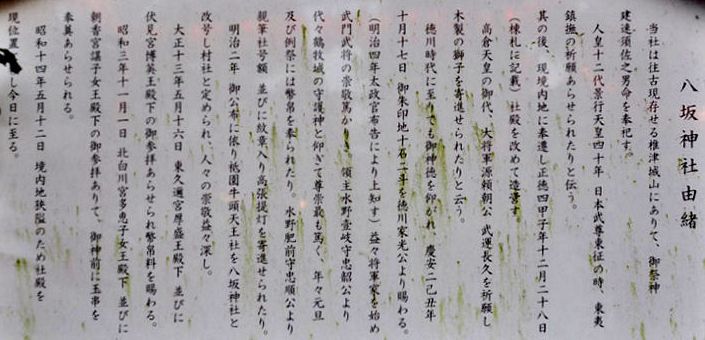 八坂神社由緒
当社は往古現存せる椎津城山にありて、御祭神
建速須佐之男命を奉祀す。
人皇十二代景行天皇四十年 日本武尊東征の時、東夷
鎮撫の祈願あらせられたりと伝う。
其の後、現境内地に奉遷し正徳四甲子年十二月二十八日
(棟札に記載) 社殿を改めて造営す
高倉天皇の御代、大将軍源頼朝公 武運長久を祈願し
木製の獅子を寄進せられたりと云う。
徳川時代に至りても御神徳を仰がれ 慶安二己丑年
十月十七日 御朱印地十石二斗を徳川家光公より賜わる。
(明治四年太政官布告により上知す) 益々将軍家を始め
武門武将の崇敬篤かりき。領主水野壱岐守忠韶公より
代々鶴牧城の守護神と仰ぎて尊崇最も篤く、年々元旦
及び例祭には幣帛を奉られたり。 水野肥前守忠順公より
親筆社号額 並びに紋章入り高張提灯を寄進せられたり。
明治二年 御公布に依り祗園牛頭天王社を八坂神社と
改号し村社と定められ、人々の崇敬益々深し。
大正十二年五月十六日 東久邇宮厚盛王殿下 並びに
伏見宮博英王殿下の御参拝あらせられ幣帛料を賜わる。
昭和三年十一月一日 北白川宮多恵子女王殿下 並びに
朝香宮湛子女王殿下の御参拝ありて、御神前に玉串を
奉奠あらせられる。
昭和十四年五月十二日 境内地狭隘のため社殿を
現位置に 今日に至る。